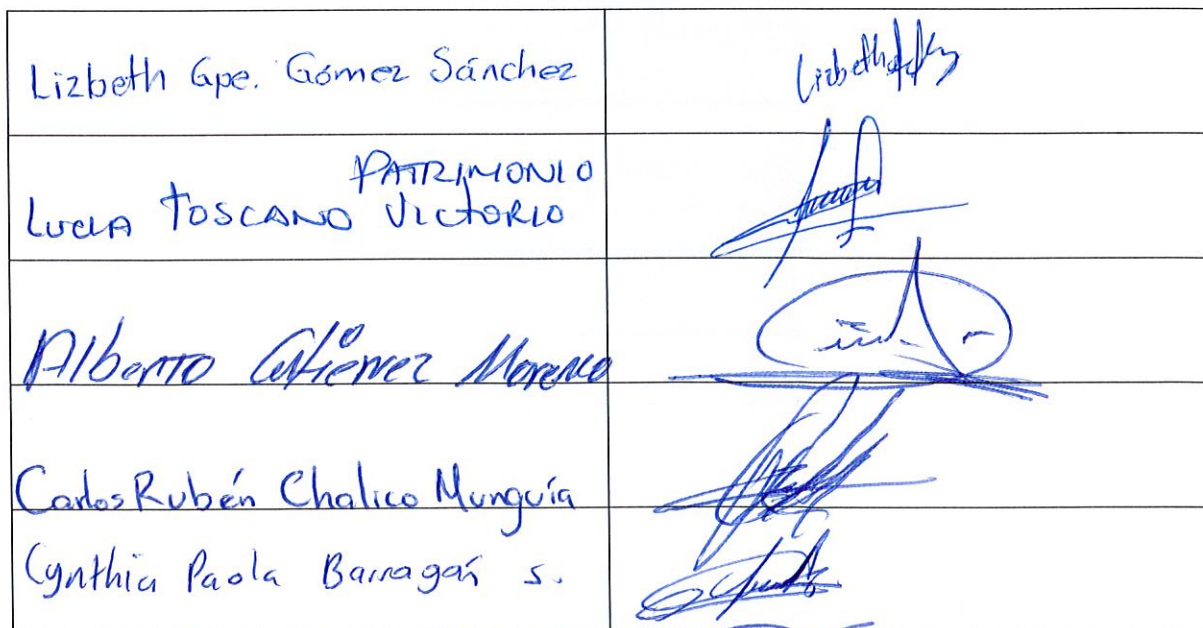 Lizbeth Gpe. Gómez Sánchez
Lizbeth
PATRIMONIO
LUCIA TOSCANO VICTORIO
Alberto Gutiérrez Moreno
Carlos Rubén Chalico Munguía
Cynthia Paola Barragán S.